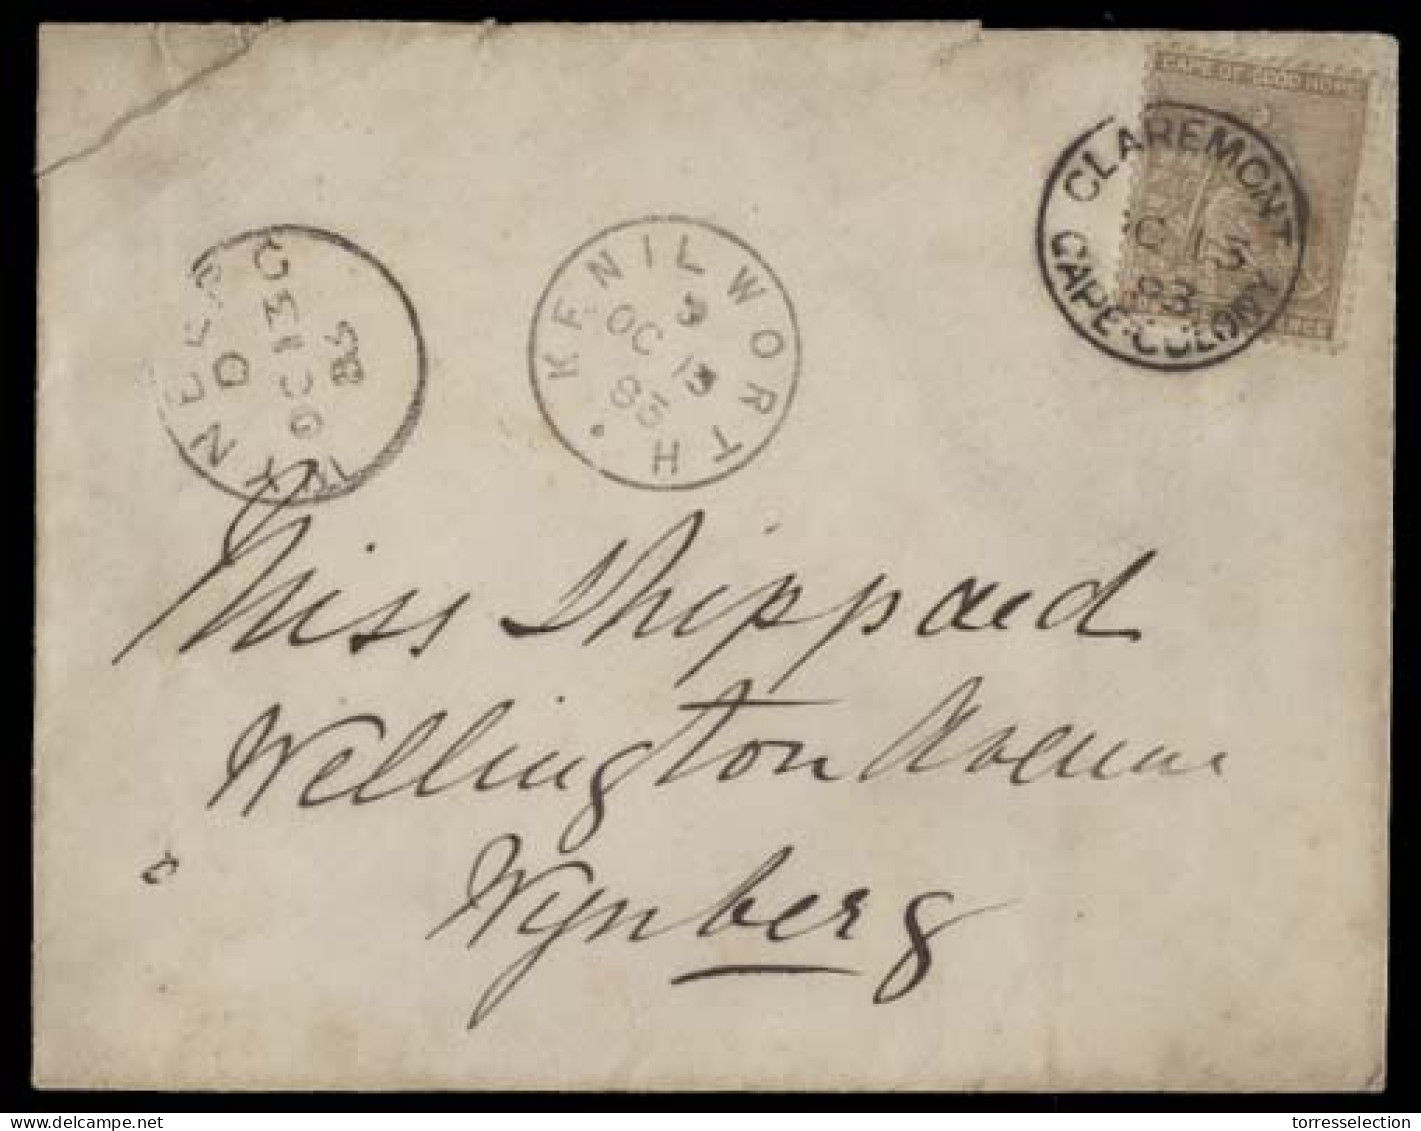 CAPE OF GOOD HOPE
CLAREMONT
OC 13
83
CAPE-COLONY
KENILWORTH
3
OC 13
83
C
OC 13
83
Miss Shippard
Wellington Avenue
Wynberg
torresselection